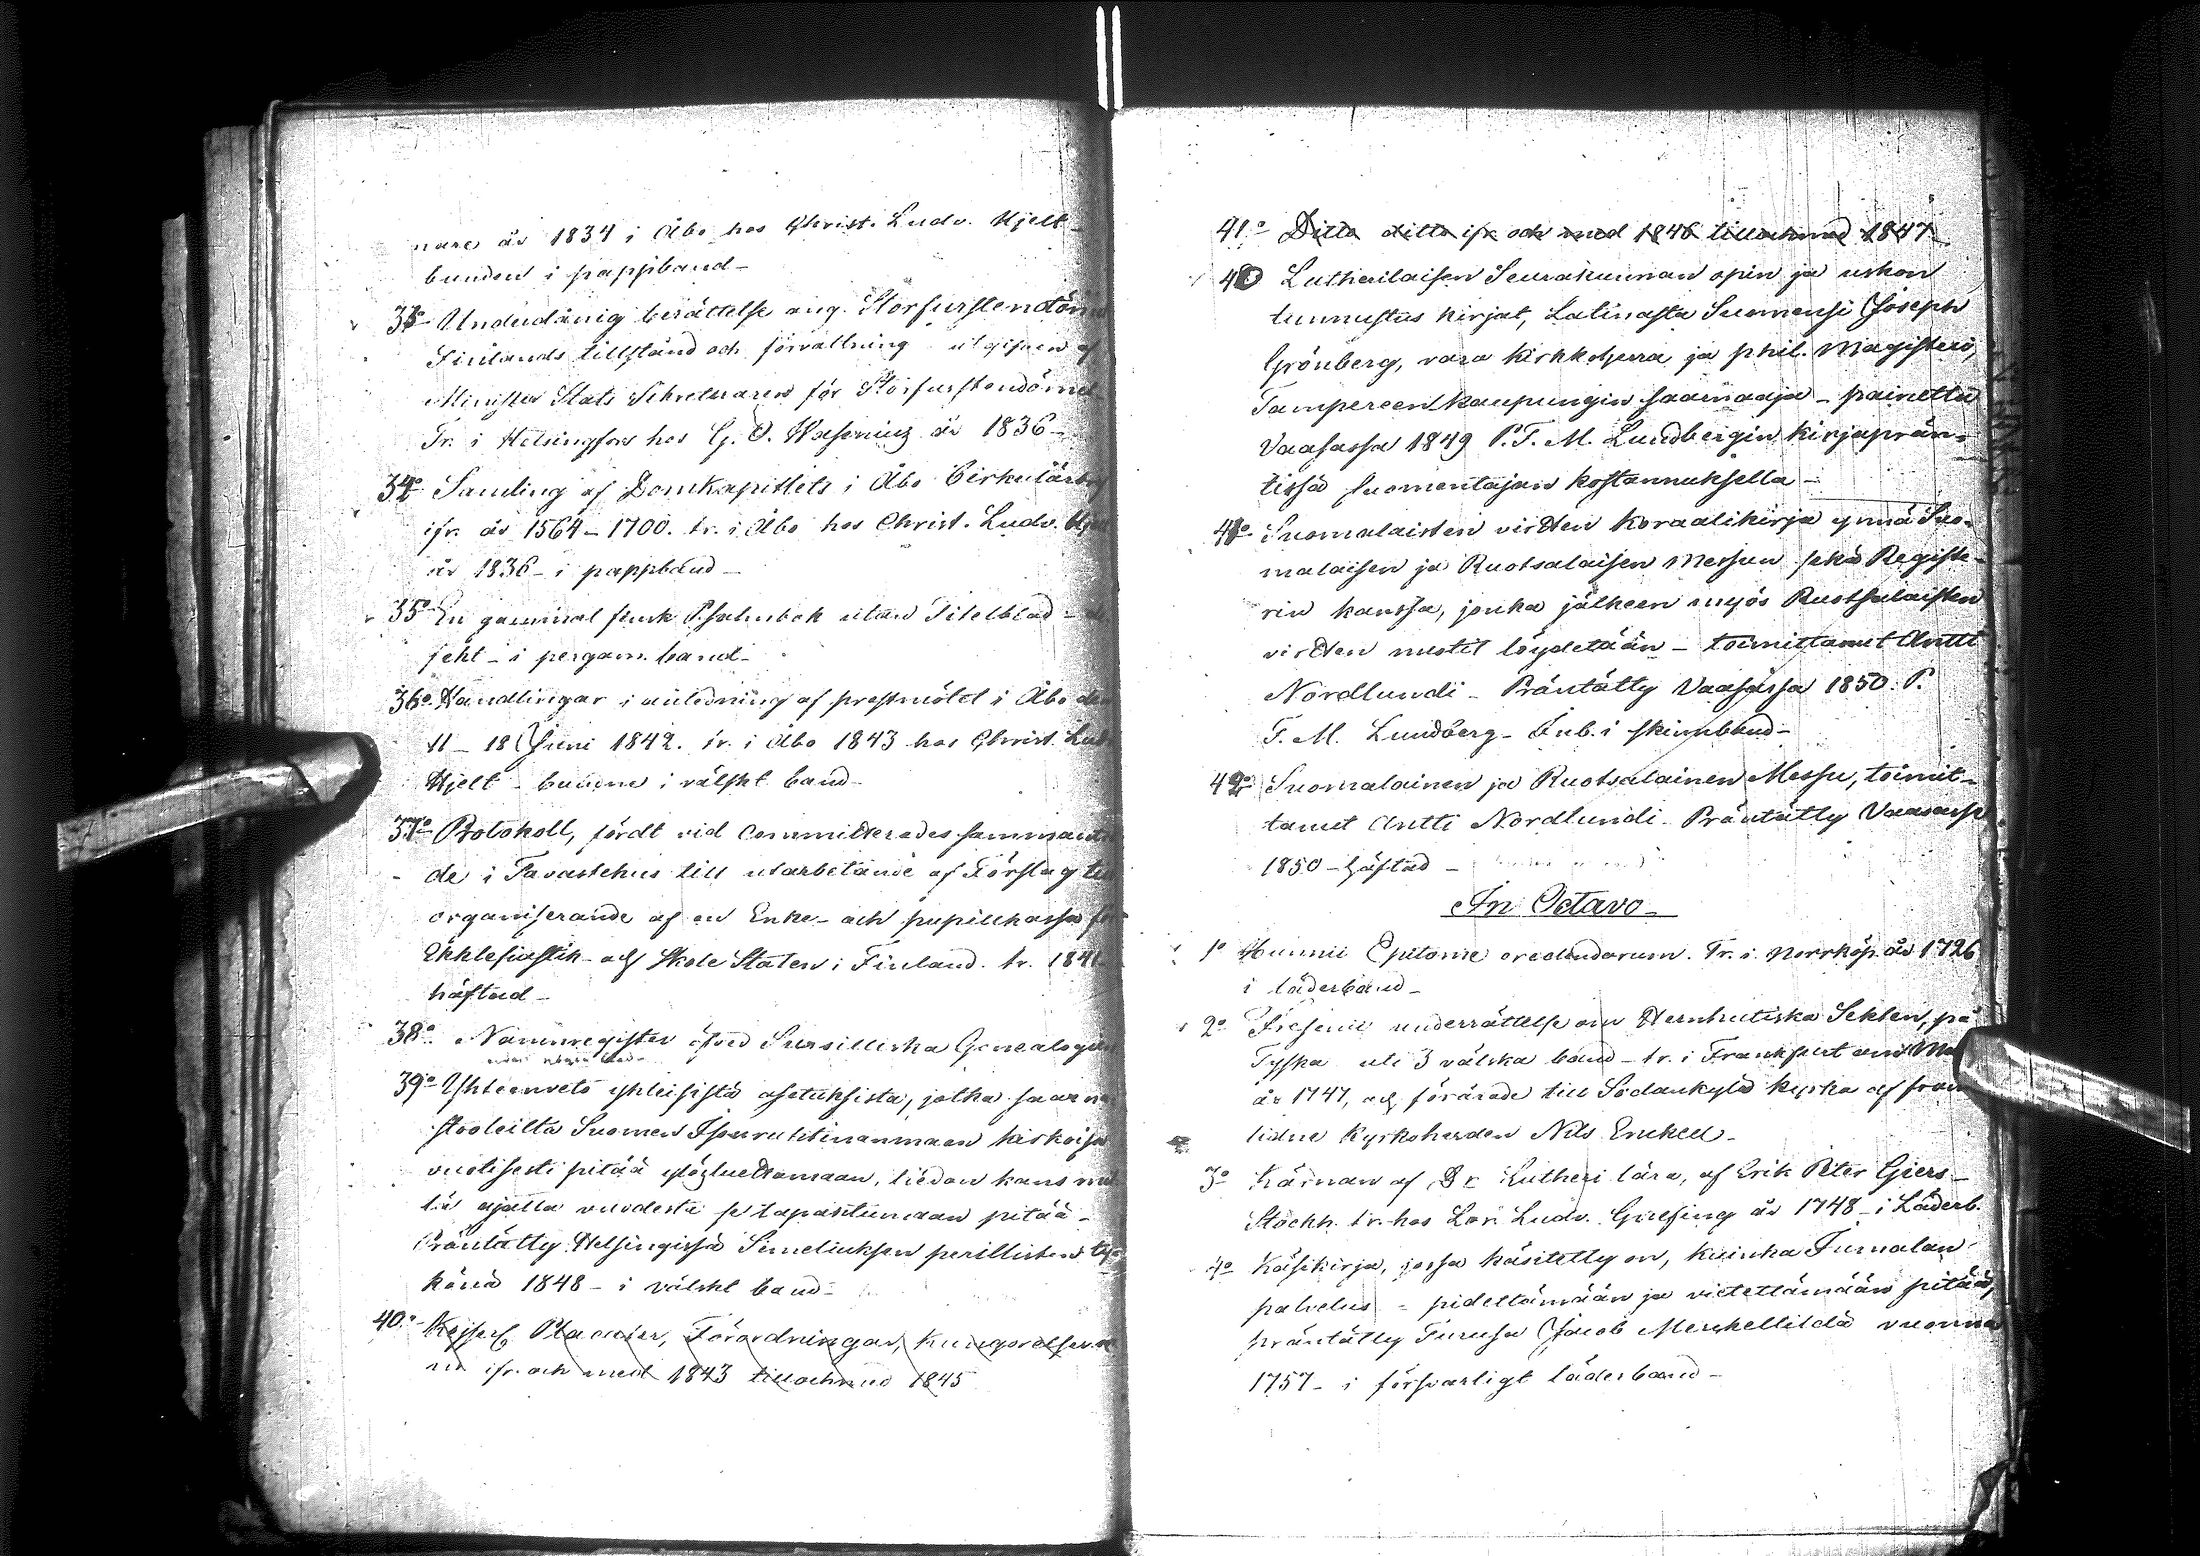 nare år 1834 i Åbo hos Christ. Ludv. Hjelt
bunden i pappband_
33o Underdånig berättelse ang. Storfurstendöm
Finlands tillstånd och förvaltning utgifven af
Minister Stats Sekreteraren för Storfurstendömet
Tr. i Helsingfors hos G. O. Wasenius år 1836_
34o Samling af Domkapitlets i Åbo Cirkulär
ifr. år 1564_1700. tr. i Åbo hos Christ. Ludv. Hje
år 1836_ i pappband_
35o En gammal finsk Psalmbok utan Titelblad_
jekt_ i pergam. band_
36o Handlingar i anledning af prestmötet i Åbo de
11_18 Juni 1842. tr. i Åbo 1843 hos Christ. Lud
Hjelt_ bundne i välskt band_
37o Protokoll, fördt vid Committerades samman
de i Tavastehus till utarbetande af Förslag till
organiserande af en Enke_ och pupillkassa för
Ekklesiastik_ och Skole Staten i Finland. tr. 184
häftad_
38o Namnregister öfver Sursilliska Genealogi
39o Yhteenveto yhteisistä asetuksista, jotka saarna
stooleilta Suomen Isonruhtinanmaan kirkoisa
vuotisesti pitää ylösluettamaan, tiedon kans mil
lä ajalla vuodesta se tapahtumaan pitää_
Präntätty Helsingissä Simeliuksen perillisten ty
könä 1848_ i välskt band_
40o Kejserl. Placater, Förordningar, Kungörelser
ifr. och med 1843 till och med 1845
41o Ditto ditto ifr och med 1846 till och med 1847_
40 Lutherilaisen Seurakunnan opin ja uskon
tunnustus kirjat, Latinasta Suomensi Joseph
Grönberg, vara kirkkoherra ja phil. Magisteri,
Tampereen kaupungin saarnaaja_ painettu
Vaasassa 1849 P. T. M. Lundbergin kirjaprän=
tissä suomentajan kostannuksella_
41o Suomalaisten virtten koraalikirja ynnä Suo=
malaisen ja Ruotsalaisen Messun sekä Registe=
rin kanssa, jonka jälkeen myös Ruotsalaisten
virtten nuotit löydetään_ toimittanut Antti
Nordlundi_ Präntätty Vaasassa 1850. P.
T. M. Lundberg_ Inb. i skinnband_
42o Suomalainen ja Ruotsalainen Messu, toimit_
tanut Antti Nordlundi_ Präntätty Vaasassa
1850_häftad_
In Octavo_
1o Hunnii Epitome credendorum. Tr. i Norrköp. år 1726
i läderband_
2o Fresenii underrättelse om Hernhutiska Sekten, på
Tyska uti 3 välska band_ tr. i Frankfurt am Ma
år 1747, och förärade till Sodankylä kyrka af fram
lidne Kyrkoherden Nils Enckell_
3o Kärnan af Dr Lutheri lära, af Erik Peter Gjers_
Stockh. tr. hos Lor. Ludv. Grefing år 1748_ i Läderb.
4o Käsikirja, jossa käsitetty on, kuinka Jumalan
palvelus_ pidettämään ja vietettämään pitää,
präntätty Turusa Jacob Merckellildä vuonna
1757_ i försvarligt läderband_